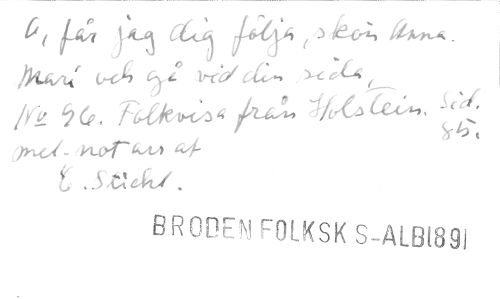 A, får jag dig följa, skön Anna.
Mari och gå vid din sida,
No 96. Folkvisa från Holstein. Sid. 85.
mel. not arr af
E. Stiehl.
BRODEN FOLKSK S-ALB 1891